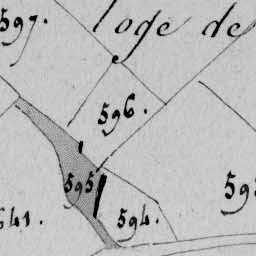 597.
loge de
596.
595
594.
641.